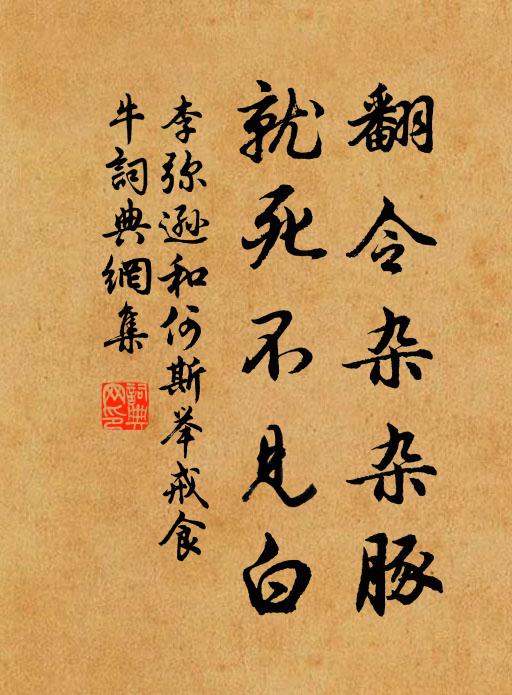 翻令杂杂豚
就死不见白
李弥逊和何斯举戒食
牛词典網集
詞典
网印